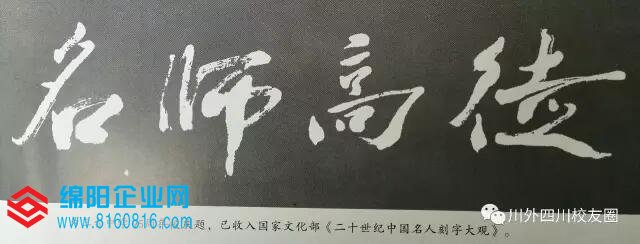 名师高徒
绵阳企业网
www.8160816.com
题，已收入国家文化部《二十世纪中国名人刻字大观》。
川外四川校友圈